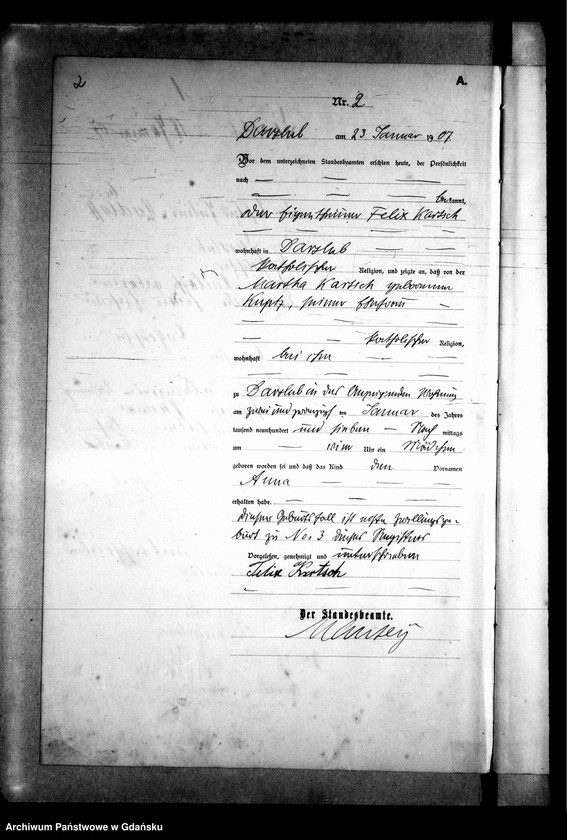 2
A.
Nr. 2
Darslub am 23 Januar 1907.
Vor dem unterzeichneten Standesbeamten erschien heute, der Persönlichkeit
nach
bekannt,
der Eigenthümer Felix Kartsch
wohnhaft in Darslub
katholischer Religion, und zeigte an, daß von der
Martha Kartsch geborenen
Kuptz, seiner Ehefrau
katholischer Religion,
wohnhaft bei ihm
zu Darslub in der Wohnung
am zwei und zwanzigsten Januar des Jahres
tausend neunhundert und sieben Nachmittags
um ein Uhr ein Mädchen
geboren worden sei und daß das Kind den Vornamen
Anna
erhalten habe.
Dieser Geburtsfall ist erste Zwillingsge-
burt zu No. 3 dieses Registers
Vorgelesen, genehmigt und unterschrieben
Felix Kartsch
Der Standesbeamte.
Archiwum Państwowe w Gdańsku